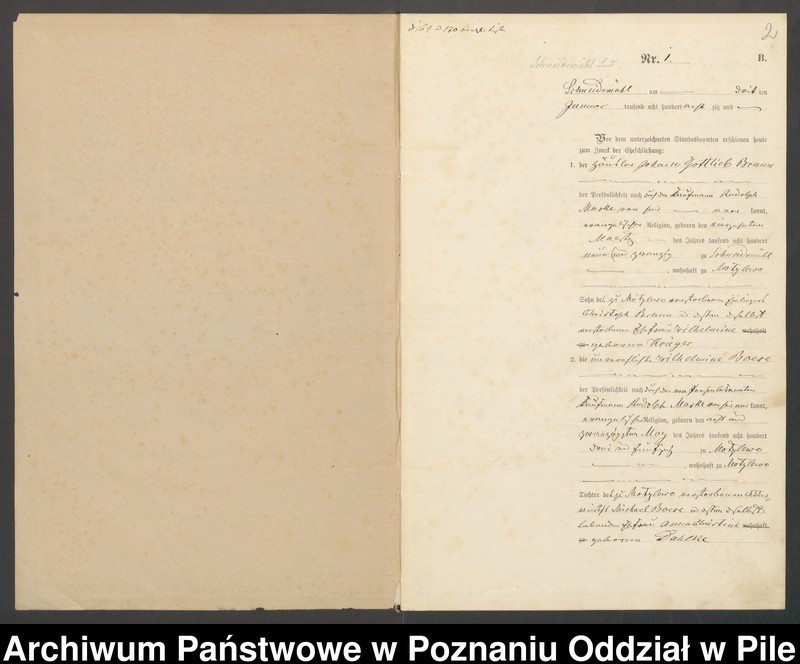 2
Schneidemühl Land
Nr. 1. B.
Schneidemühl am drit ten
Januar tausend acht hundert acht zig und
Vor dem unterzeichneten Standesbeamten erschienen heute
zum Zweck der Eheschließung:
1. der Häusler Johann Gottlieb Braun
der Persönlichkeit nach durch den Kaufmann Rudolph
Maske von hier kannt,
evangelischer Religion, geboren den vierzehnten
Maerz des Jahres tausend acht hundert
neun und zwanzig zu Schneidemühl
, wohnhaft zu Motylewo
Sohn des zu Motylewo verstorbenen
Christoph Braun und dessen daselbst
verstorbenen Ehefrau Wilhelmine wohnhaft
zu geborenen Krüger
2. die unverehelichte Wilhelmine Boese
der Persönlichkeit nach durch den
Kaufmann Rudolph Maske von hier kannt,
evangelischer Religion, geboren den acht und
zwanzigsten May des Jahres tausend acht hundert
drei und fünfzig zu Motylewo
, wohnhaft zu Motylewo
Tochter des zu Motylewo verstorbenen
Michael Boese und dessen daselbst
lebenden Ehefrau Anna Christine wohnhaft
zu geborenen Dahlke
Archiwum Państwowe w Poznaniu Oddział w Pile